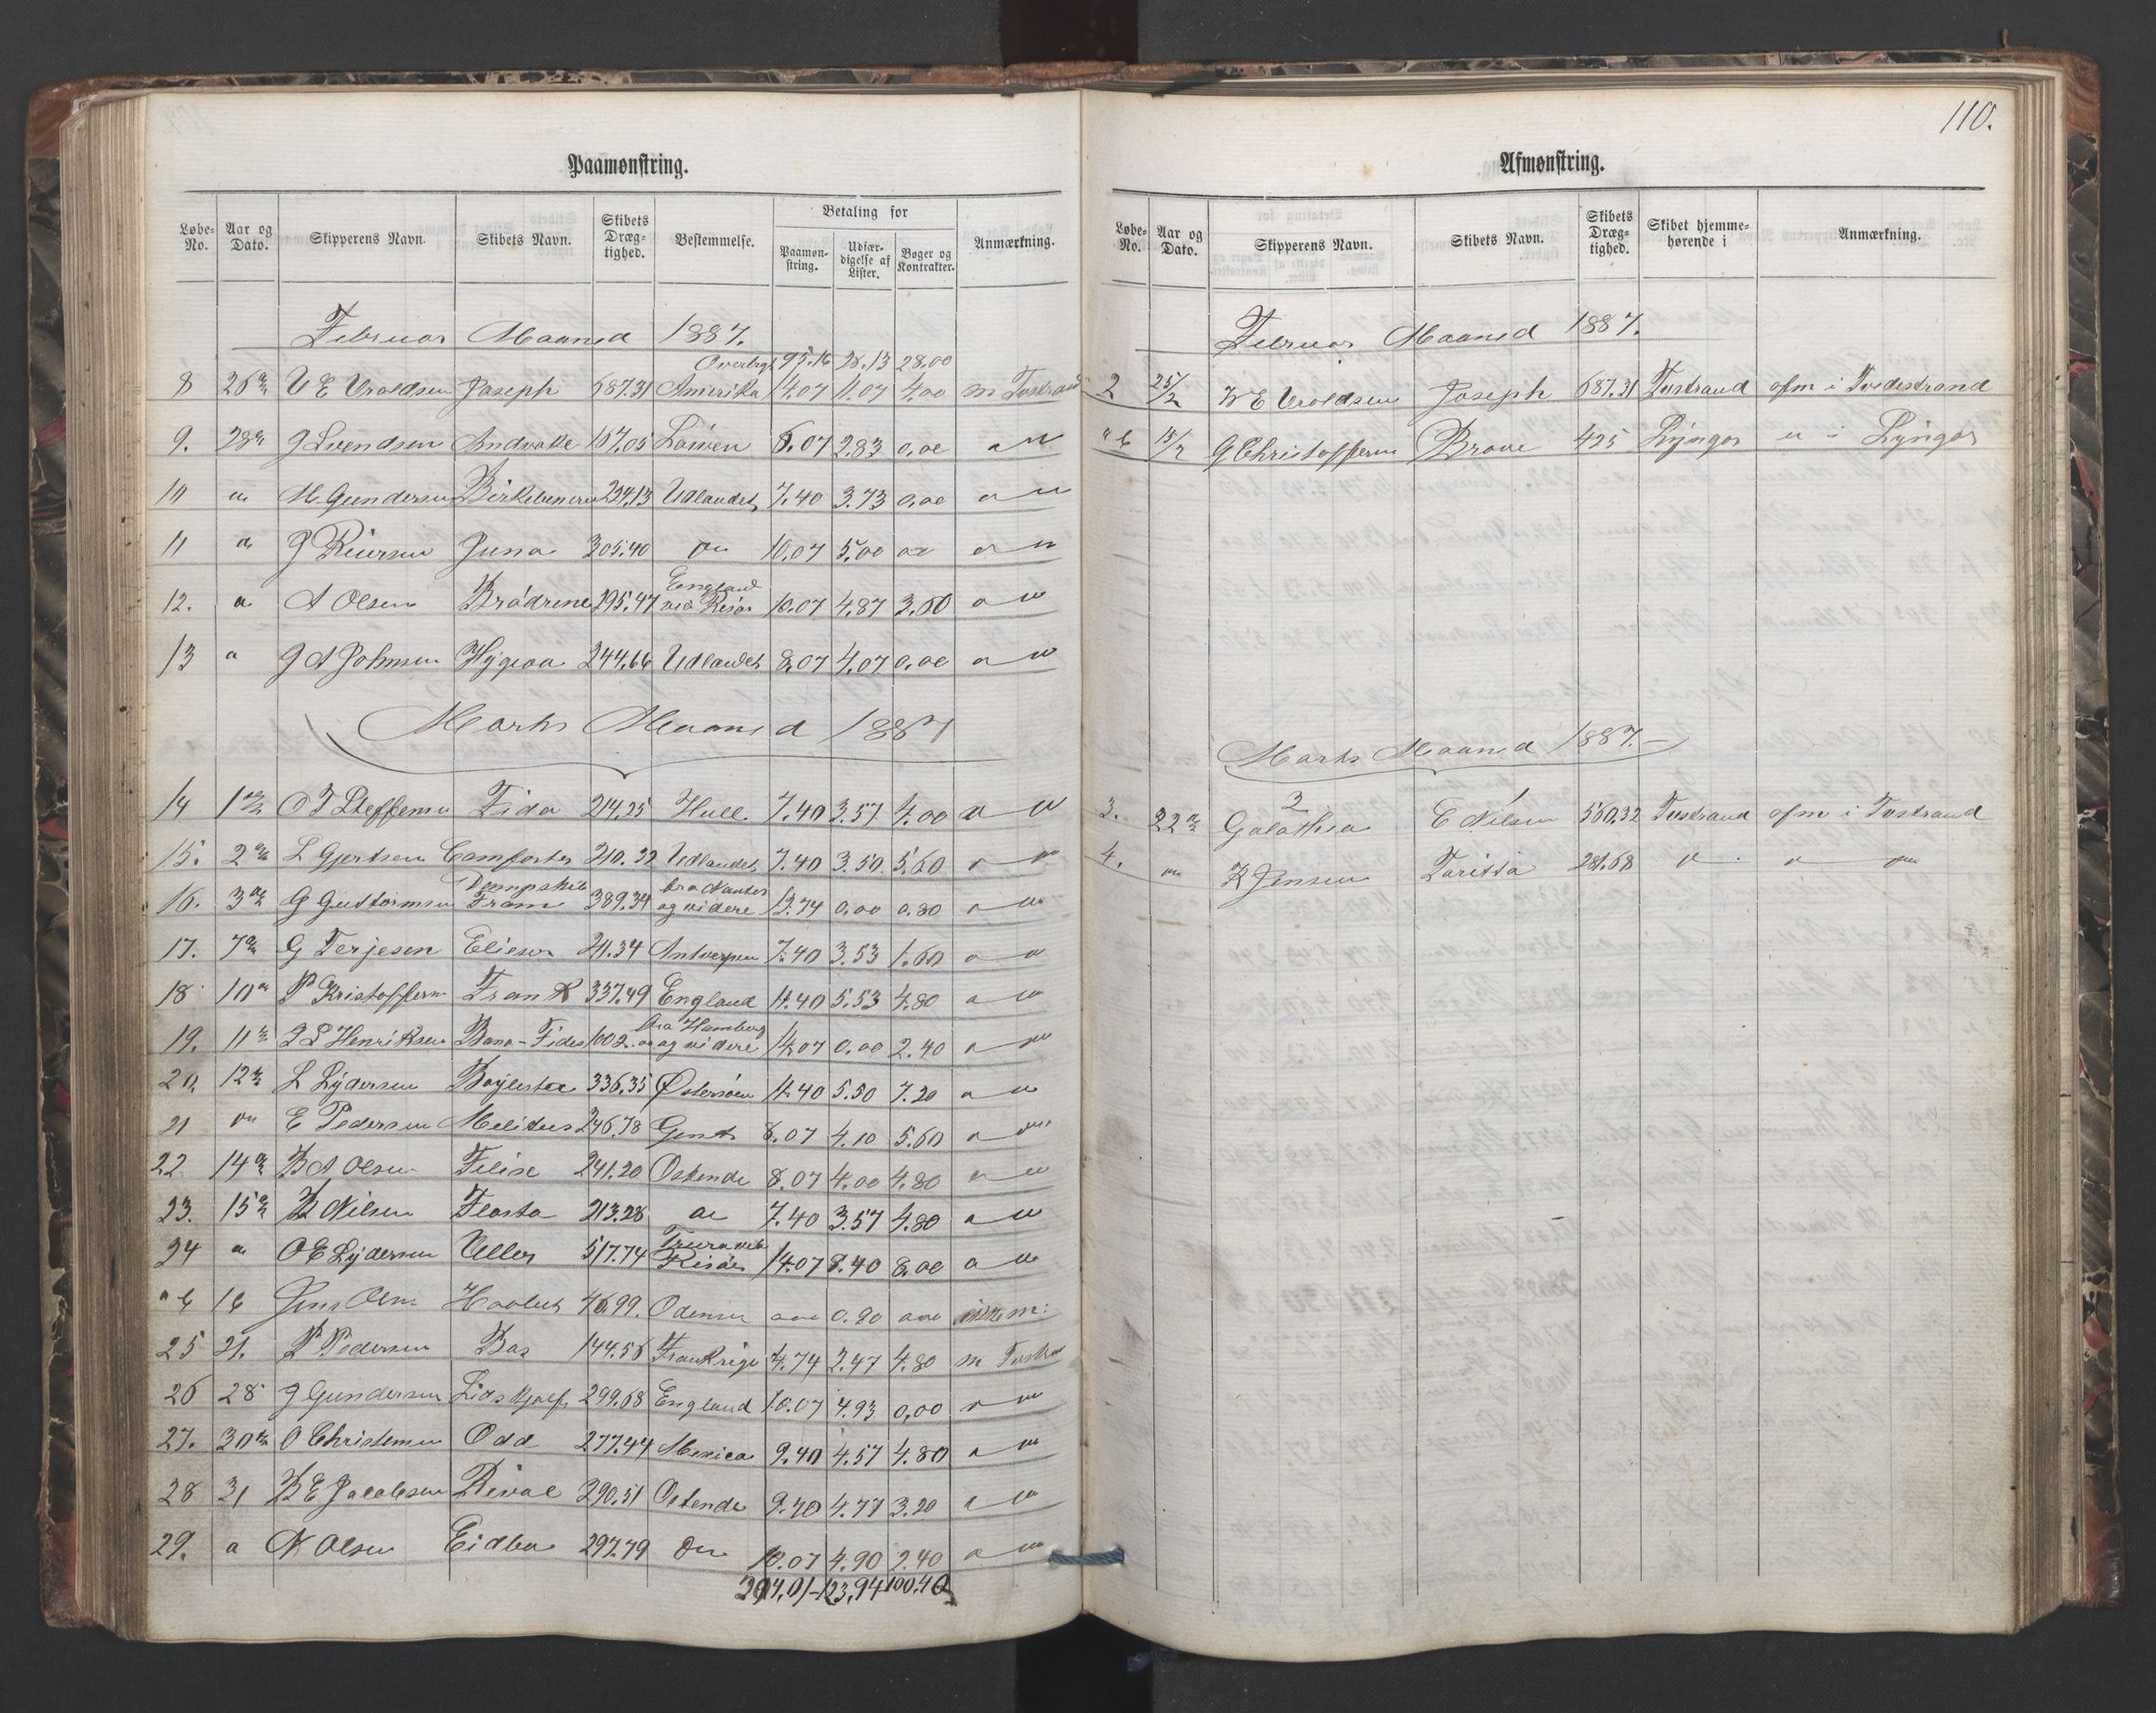 110.
Paamønstring.
Løbe-No. Aar og Dato. Skipperens Navn. Skibets Navn. Skibets Dræg-tighed. Bestemmelse. Betaling for Paamøn-string. Udfær-digelse af Lister. Bøger og Kontrakter. Anmærkning.
Februar Maaned 1887.
Overlagt 95.16 28.13 28.00
8 26 Joseph 687.31 Amerika 14.07 11.07 4,00 m
9. 28 J Svendsen Andvake 167.05 6.07 2.83 0,00
10 M. Gundersen 234.13 Udlandet 7.40 3.73 0,00
11 J Reiersen Juno 305.40 10.07 5.00
12. A Olsen Brødrene 295.47 England via Risør 10.07 4.87 3.60
13 J A Johnsen Hygæa 244.66 Udlandet 8.07 4.07 0,00
Marts Maaned 1887
14 1 O T Steffensen Fida 214.25 Hull 7.40 3.57 4.00
15. 2 L Gjertsen Comforter 210.32 Udlandet 7.40 3.50 5.60
16. 3 G Guttormsen Dampskib Fram 389.34 fra Nantes og videre 13.74 0.00 0.80
17. 7 G Terjesen Elieser 211.34 Antwerpen 7.40 3.53 1.60
18 10 P Kristoffersen Frank 337.49 England 11.40 5.53 4.80
19. 11 Henriksen Bona-Fides 1002. fra Hamburg og videre 14.07 0.00 2.40
20. 12 L Lydersen 336.35 Østersøen 11.40 5.50 7.20
21 E Pedersen 246.78 Gent 8.07 4.10 5.60
22. 14 B A Olsen Felix 241.20 Ostende 8.07 4.00 4.80
23. 15 Nilsen Flosta 213.28 do 7.40 3.57 4.80
24 O E Lydersen Uller 517.74 Risør 14.07 8.40 8.00
16 Jens Olsen 46.99. Odense 0.90 ikke m:
25 21. P Pedersen 144.56 Frankrige 4.74 2.47 4.80 m
26 28 J Gundersen Lidskjalf 299.68 England 10.07 4.93 0,00
27. 30 O Christensen Odd 277.44 Mexico 9.40 4.57 4.80
28 31 Jacobsen Rival 290.51 Ostende 9.40 4.77 3.20
29. N Olsen Eidba 297.79 10.07 4.90 2.40
294.01 123.94 100.40
Afmønstring.
Løbe-No. Aar og Dato. Skipperens Navn. Skibets Navn. Skibets Dræg-tighed. Skibet hjemme-hørende i Anmærkning.
Februar Maaned 1887.
2 25/2 Joseph 687.31 Tvstrand afm i Tvedestrand
" b 15/2 G Christoffersen Brave 495 Lyngør " i Lyngør
Marts Maaned 1887.
2 1
3. 22 Galathea E Nilsen 560.32 Tvstrand afm i Tvstrand
4. K Jensen 281.68